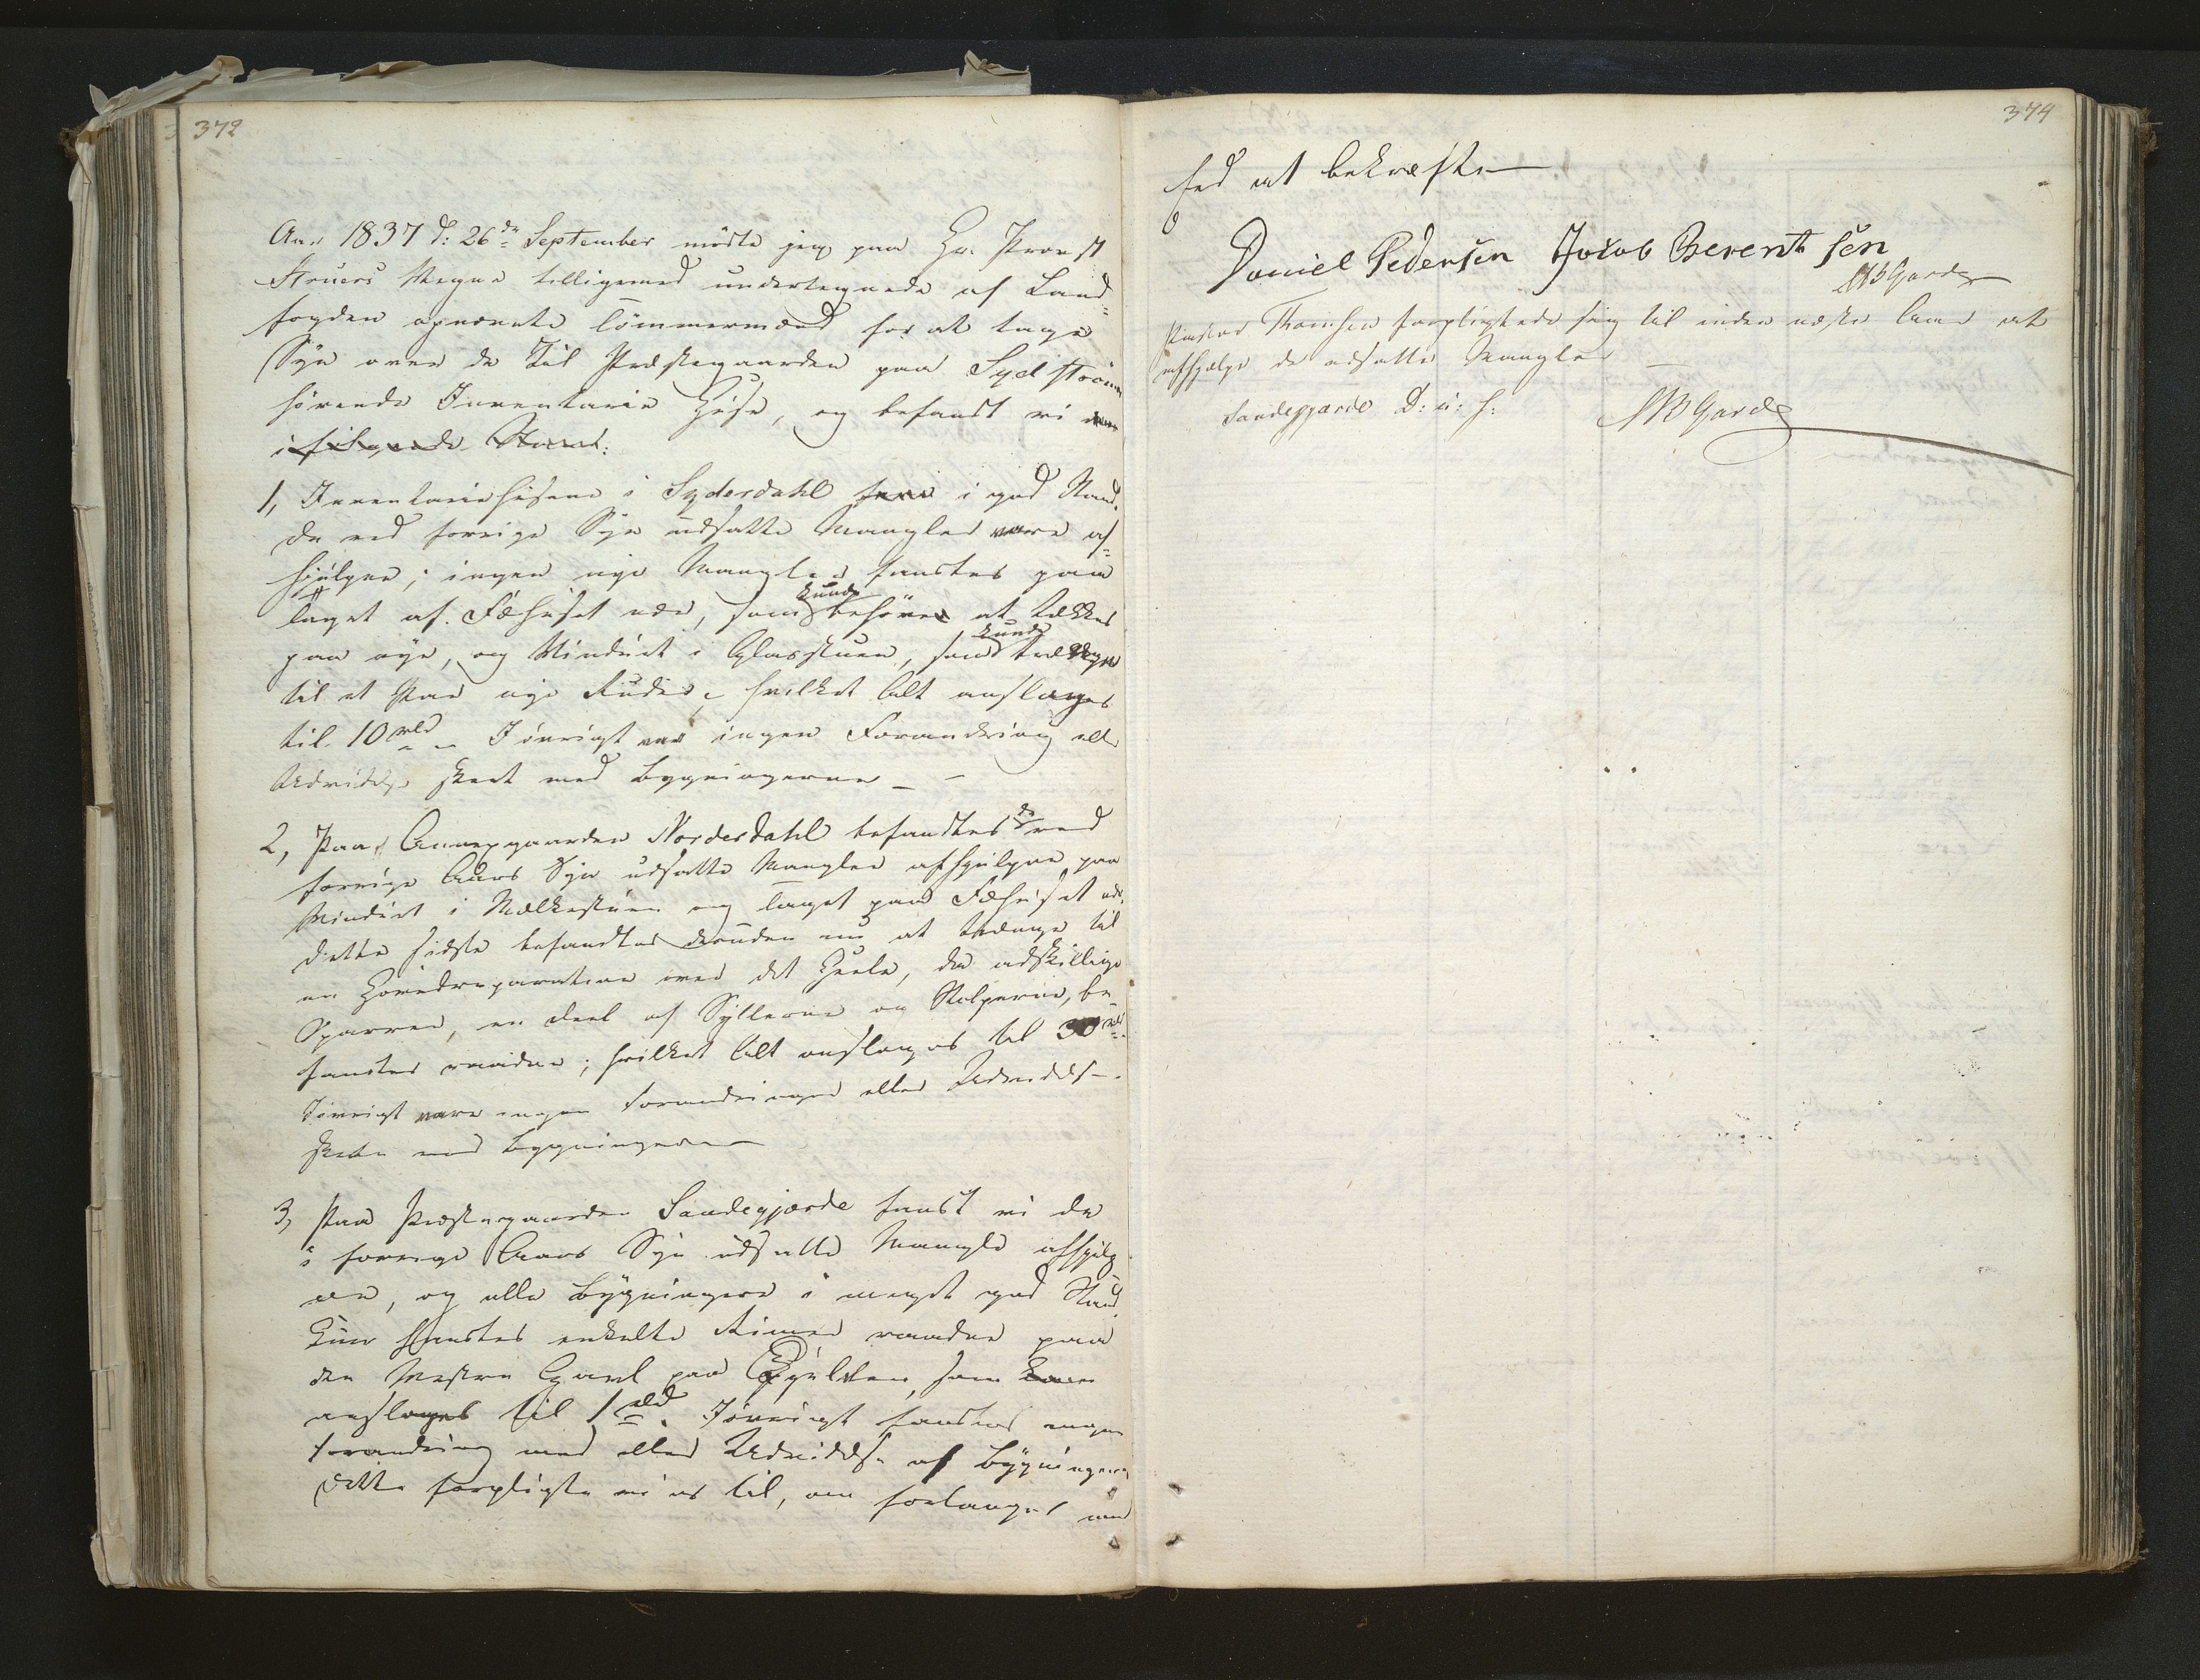 372
Ano 1837 d: 26de September mödte jeg paa Hr. Provst
Strucrs Vegne tilligemed undertegnede af Land=
fogden opnævnte Tömmermænd for at tage
Syn over de til Præstegaarden paa Sydströmö
hörende Inventarie Huse, og befandt vi dem
i fölgende Stand:
1, Inventariehusene i Syderdahl i god Stand.
de ved forrige Syn udsatte Mangler vare af=
hjulpne; ingen nye Mangler fandtes paa
Taget af Fæhuset nær, som kunde behöve at tækkes
paa nye, og Vinduet i Glasstuen, som kunde trænge
til et Par nye Ruder, hvilket Alt anslages
til 10 rbd. Iövrigt var ingen Forandring eller
Udvidelse skeet med Bygningerne —
2, Paa Annexgaarden Norderdahl befandtes de ved
forrige Aars Syn udsatte Mangler afhjulpne paa
Vinduet i Mælkestuen og Taget paa Fæhuset nær.
dette sidste befandtes desuden nu at trænge til
en Hovedreparation over det Heele, da adskillige
Sparrer, en deel af Syllerne og Stolperne, be-
fandtes raadne; hvilket Alt anslages til 30 rbd.
Iövrigt vare ingen Forandringer eller Udvidelse
skete med Bygningerne
3, Paa Præstegaarden Sandegjærde fandt vi de
i forrige Aars Syn udsatte Mangler afhjulp
ne, og alle Bygningerne i meget god Stand.
Kun fandtes enkelte raadne paa
den Vestre Gavl paa Hjelden, som
anslages til 1 rbd. Iövrigt fandtes ingen
Forandring med eller Udvidelse af Bygningerne
Dette forpligte vi os til, om forlanges med
374
Eed at bekræfte
Daniel Pedersen Jakob Berentsen
MBGarde
Pastor Thomsen forpligtede sig til inden næste Aar at
afhjælpe de udsatte Mangler —
Sandegjærde D: u: s: MBGarde